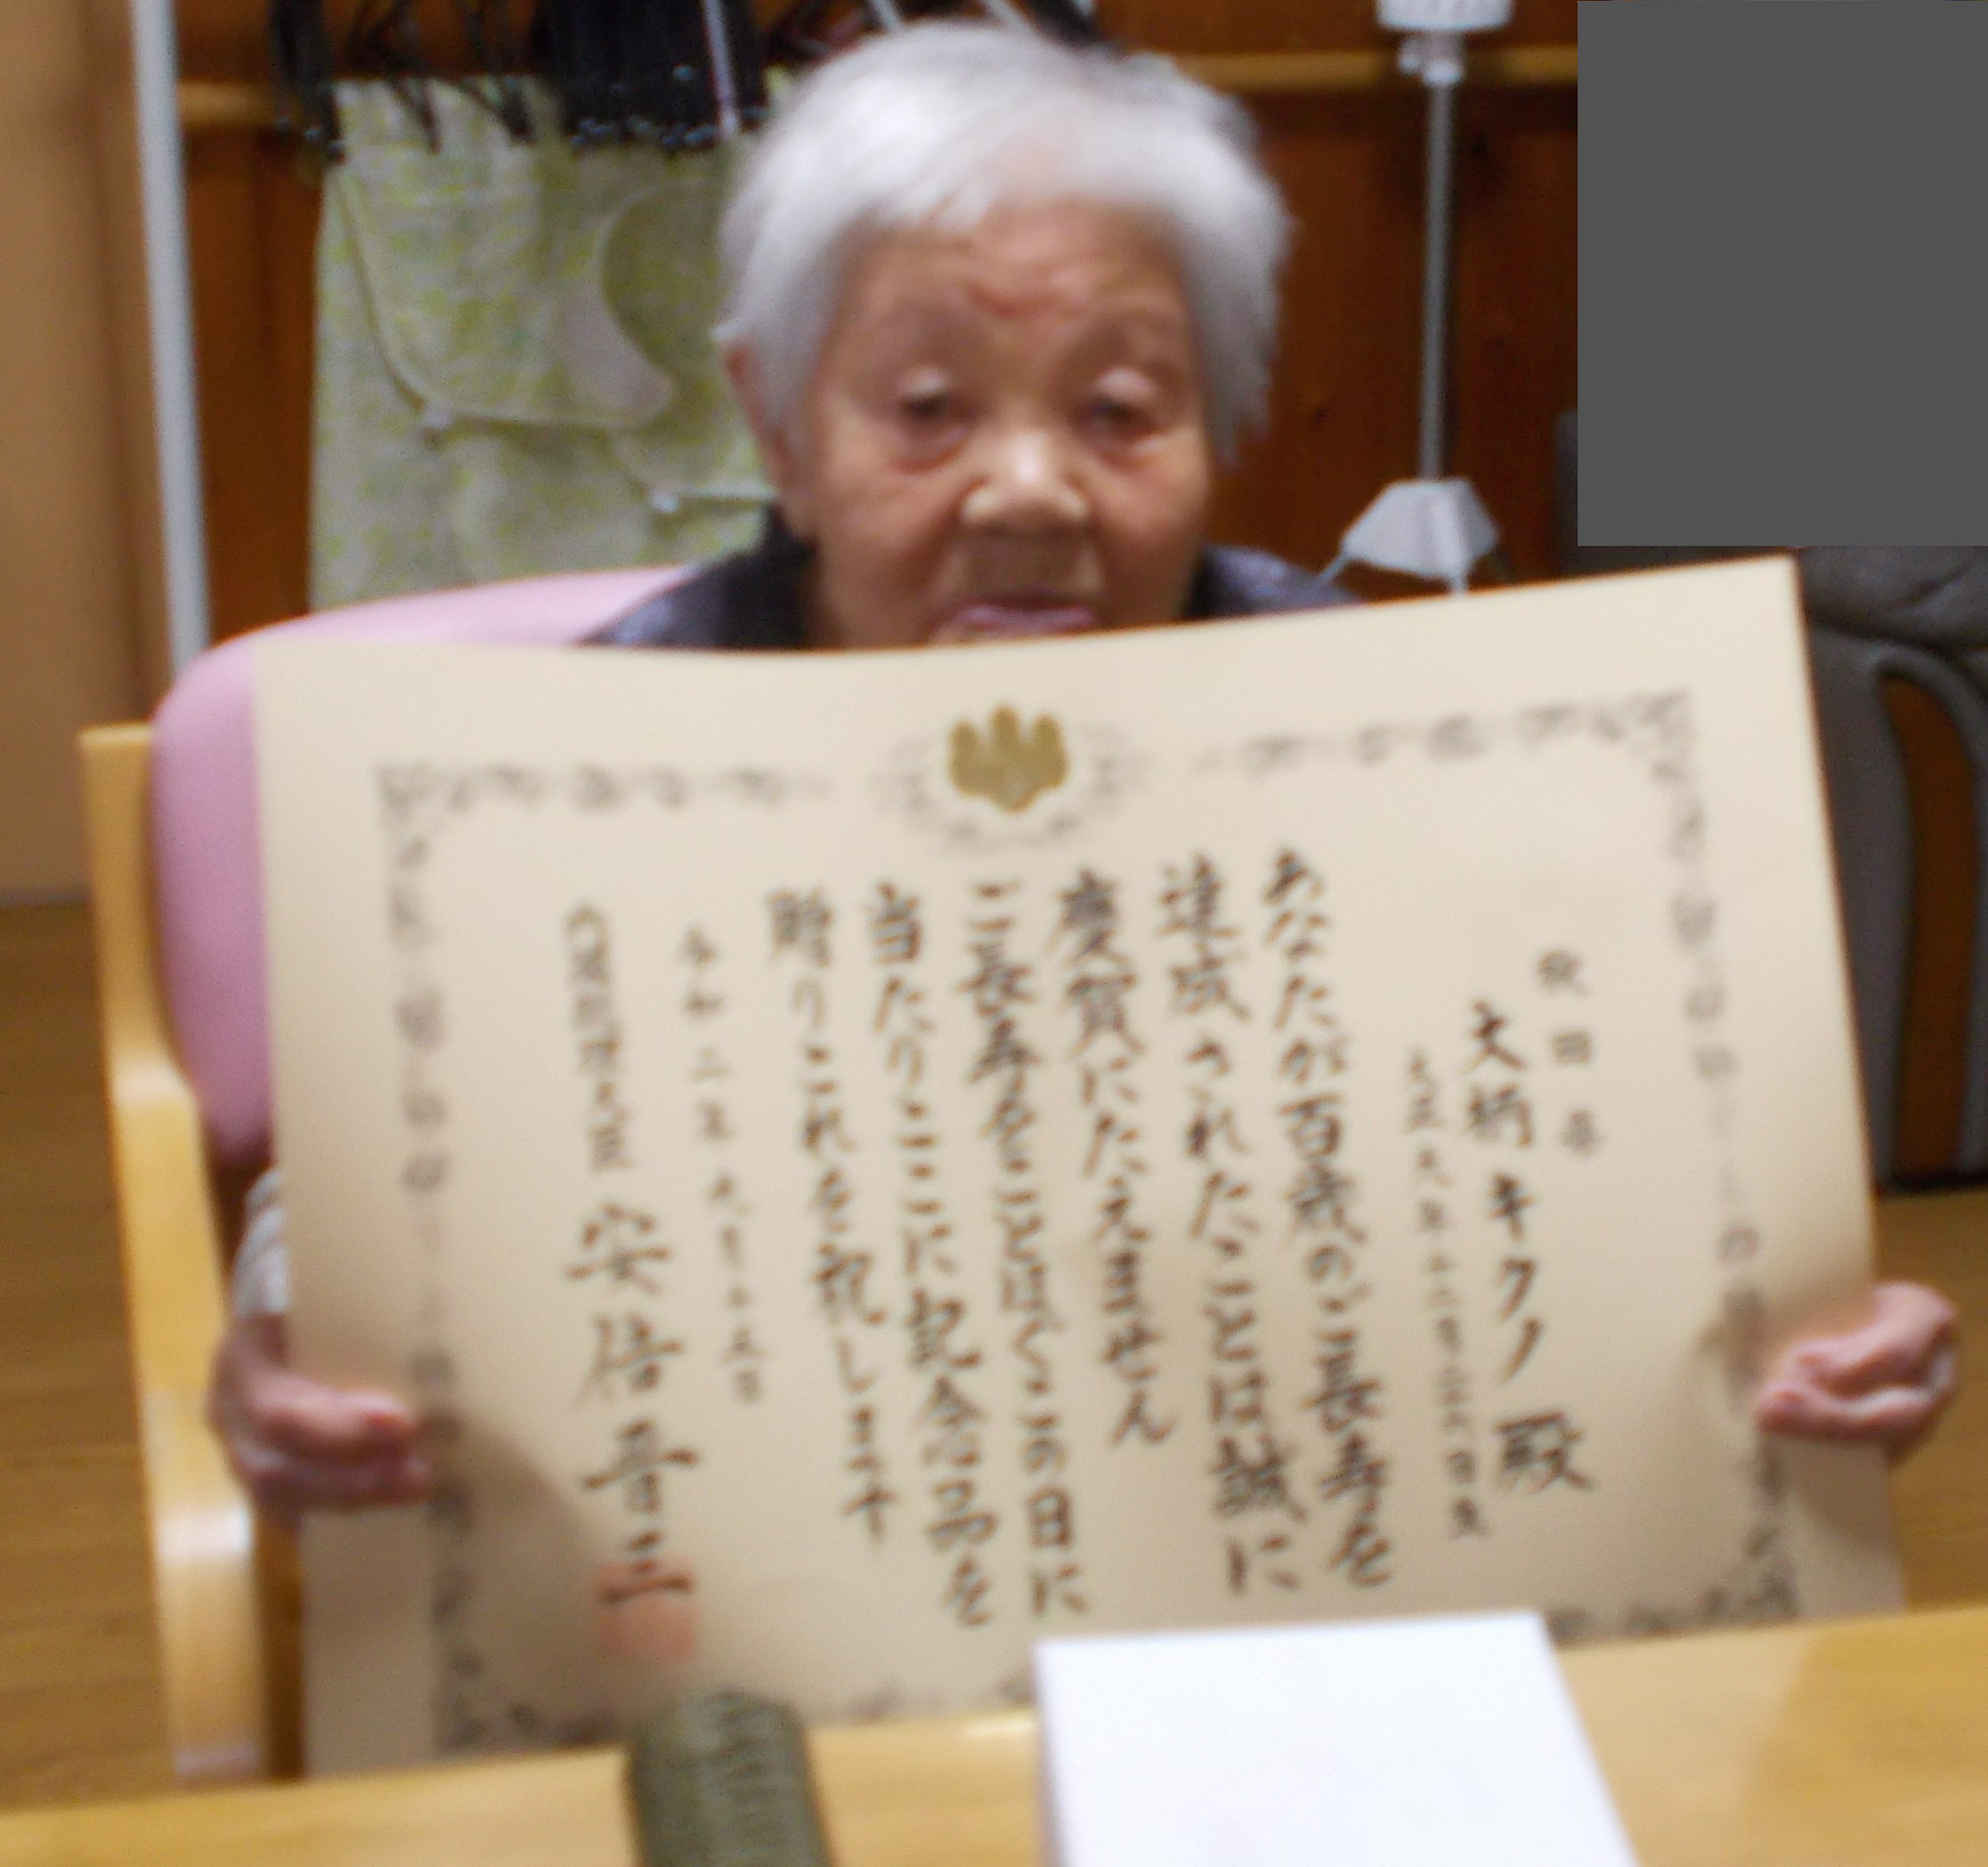 秋田県
大柄キクノ 殿
大正九年十二月二十六日生
あなたが百歳のご長寿を
達成されたことは誠に
慶賀にたえません
ご長寿をことほぐこの日に
当たりここに記念品を
贈りこれを祝します
令和二年九月十五日
内閣総理大臣 安倍晋三